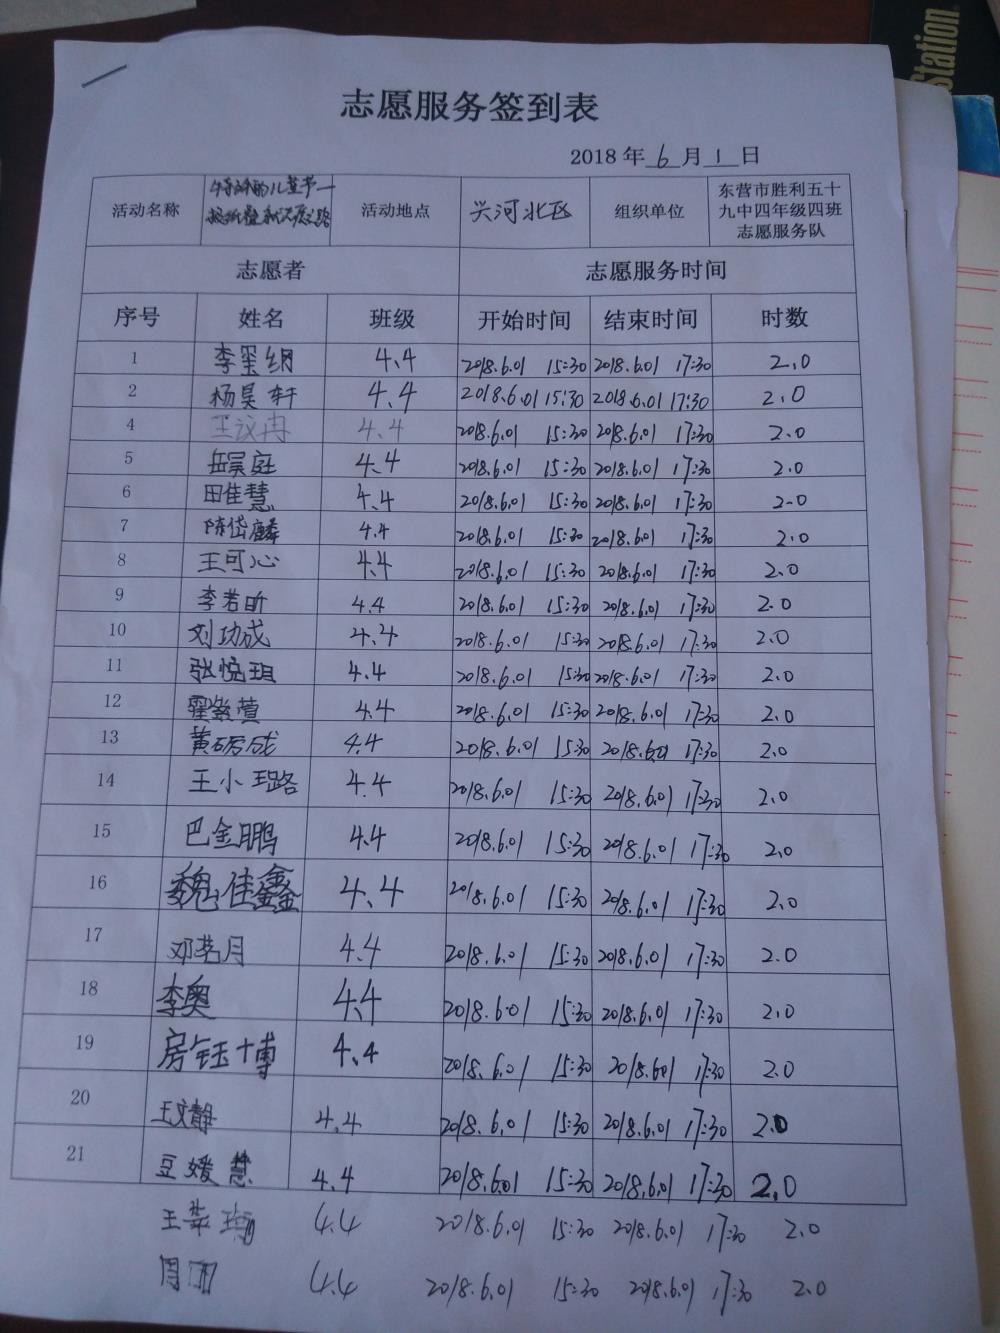 Station
志愿服务签到表
2018 年 6 月 1 日
活动名称 特殊的儿童节一 活动地点 兴河北区 组织单位 东营市胜利五十九中四年级四班志愿服务队
志愿者 志愿服务时间
序号 姓名 班级 开始时间 结束时间 时数
1 李玺纲 4.4 2018.6.01 15:30 2018.6.01 17:30 2.0
2 杨昊轩 4.4 2018.6.01 15:30 2018.6.01 17:30 2.0
4 王议冉 4.4 2018.6.01 15:30 2018.6.01 17:30 2.0
5 岳昊庭 4.4 2018.6.01 15:30 2018.6.01 17:30 2.0
6 田佳慧 4.4 2018.6.01 15:30 2018.6.01 17:30 2.0
7 陈岱麟 4.4 2018.6.01 15:30 2018.6.01 17:30 2.0
8 王可心 4.4 2018.6.01 15:30 2018.6.01 17:30 2.0
9 李若昕 4.4 2018.6.01 15:30 2018.6.01 17:30 2.0
10 刘功成 4.4 2018.6.01 15:30 2018.6.01 17:30 2.0
11 张悦玥 4.4 2018.6.01 15:30 2018.6.01 17:30 2.0
12 霍紫萱 4.4 2018.6.01 15:30 2018.6.01 17:30 2.0
13 黄砺成 4.4 2018.6.01 15:30 2018.6.01 17:30 2.0
14 王小璐 4.4 2018.6.01 15:30 2018.6.01 17:30 2.0
15 巴金鹏 4.4 2018.6.01 15:30 2018.6.01 17:30 2.0
16 魏佳鑫 4.4 2018.6.01 15:30 2018.6.01 17:30 2.0
17 邓茗月 4.4 2018.6.01 15:30 2018.6.01 17:30 2.0
18 李奥 4.4 2018.6.01 15:30 2018.6.01 17:30 2.0
19 房钰博 4.4 2018.6.01 15:30 2018.6.01 17:30 2.0
20 王文静 4.4 2018.6.01 15:30 2018.6.01 17:30 2.0
21 豆媛慧 4.4 2018.6.01 15:30 2018.6.01 17:30 2.0
4.4 2018.6.01 15:30 2018.6.01 17:30 2.0
4.4 2018.6.01 15:30 2018.6.01 17:30 2.0